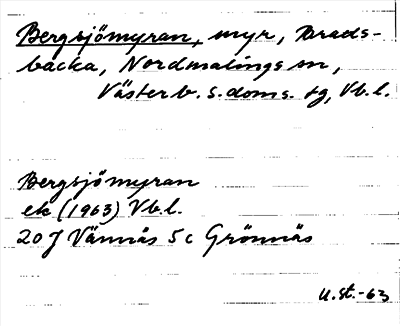 Bergsjömyran, myr, Brads-
backa, Nordmalings sn,
Västerb. s. doms. tg, Vb.l.
Bergsjömyran
ek (1963) Vb.l.
20 J Vännäs 5 c Grönnäs
U.St.-63